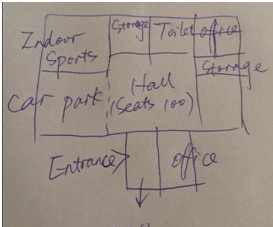 Storage
Toilet
office
Indoor
Sports
Storage
Car park
Hall
(Seats 100)
Entrance
office